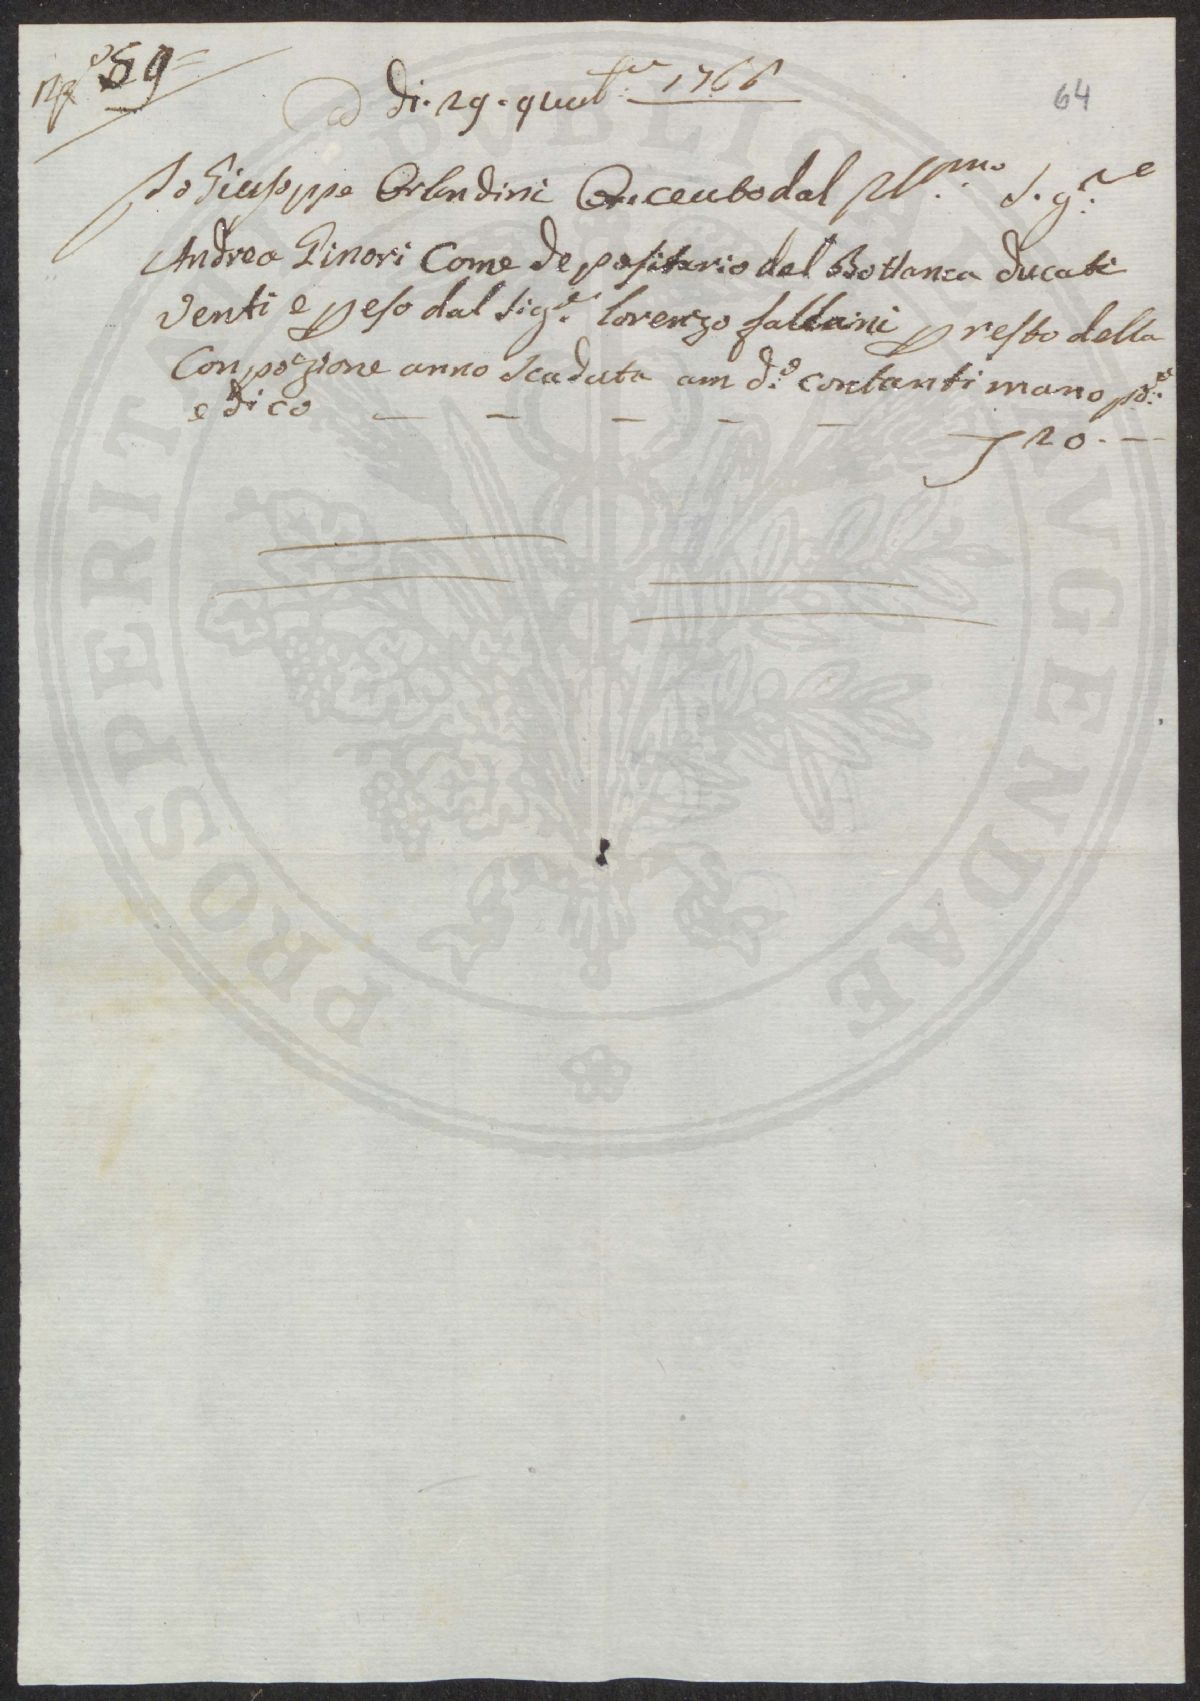 N.º 59
Adi. 29. 9mbre 1766
64
Io Giuseppe Orlandini O riceuto dal Ill.mo S.gre
Andrea Ginori Come depositario del Bottanica ducati
venti e p eso dal Sig.e Lorenzo fallani p resto della
Conpozione anno Scaduto am d.o contanti mano pd.o
e dico — — — — — ƒ 20. —
PROSPERITATI PVBLICAE AVGENDAE